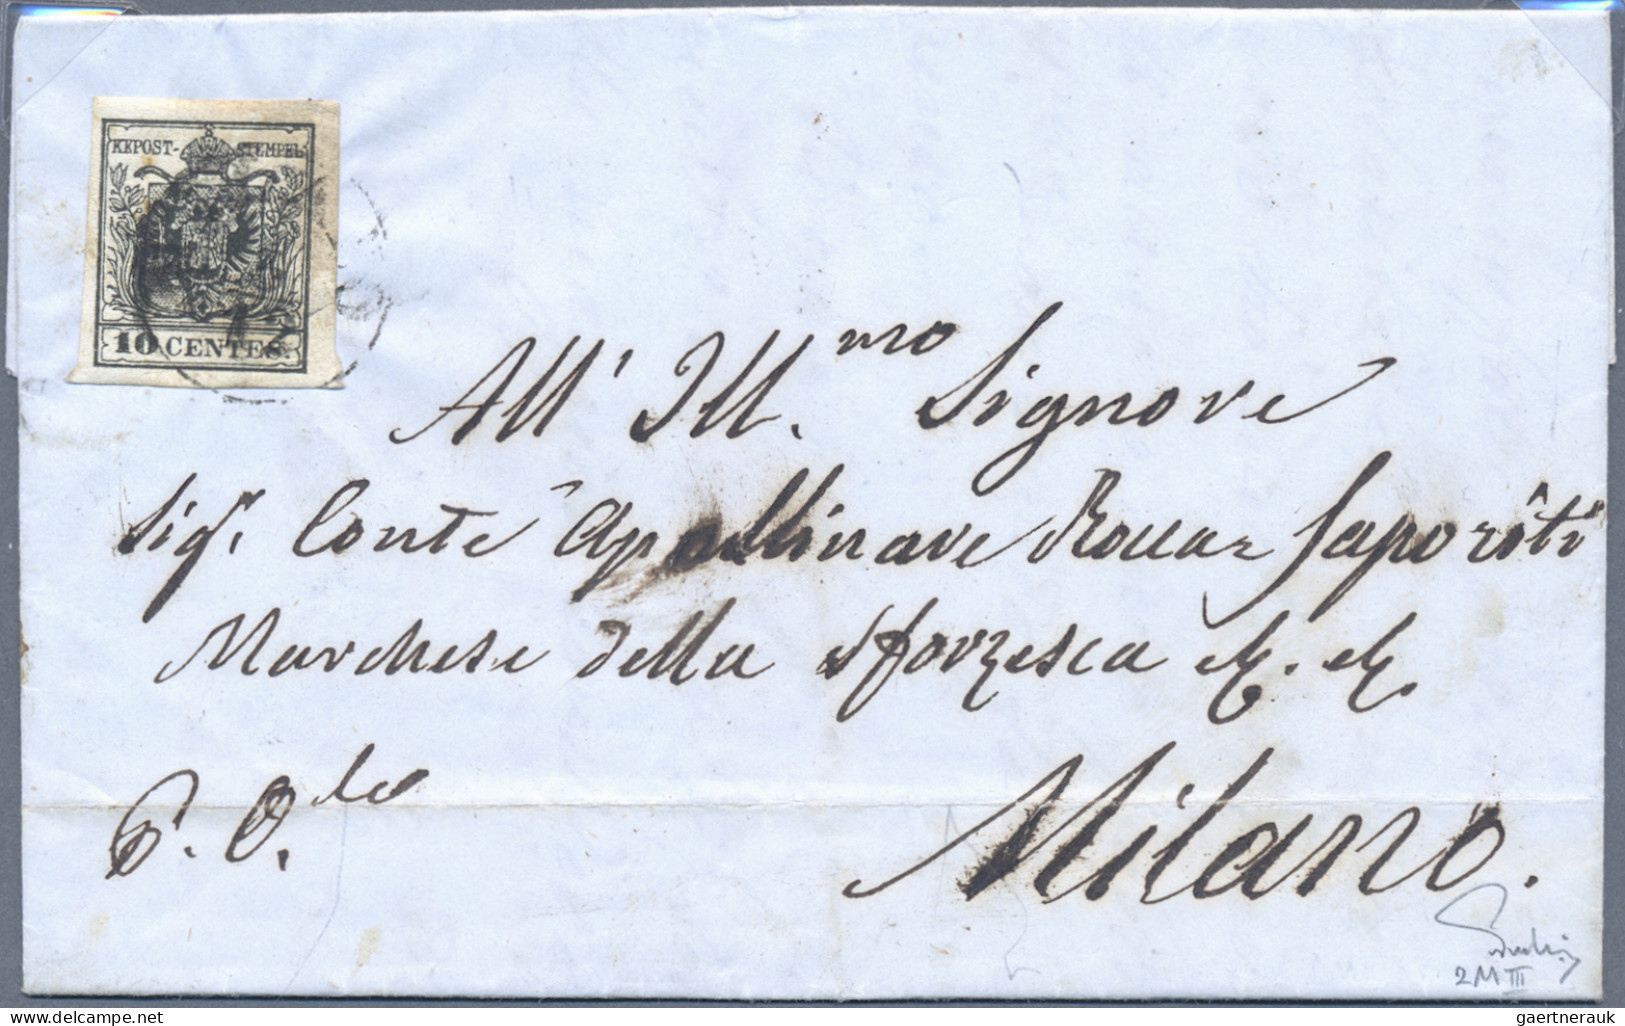 KKPOST- STEMPEL
10 CENTES.
All' Ill.mo Signore
Sig.r Conte Apollinare Rocca Saporiti
Marchese della Sforzesca &. &.
Milano.
2 M III
delcampe.net
gaertnerauk